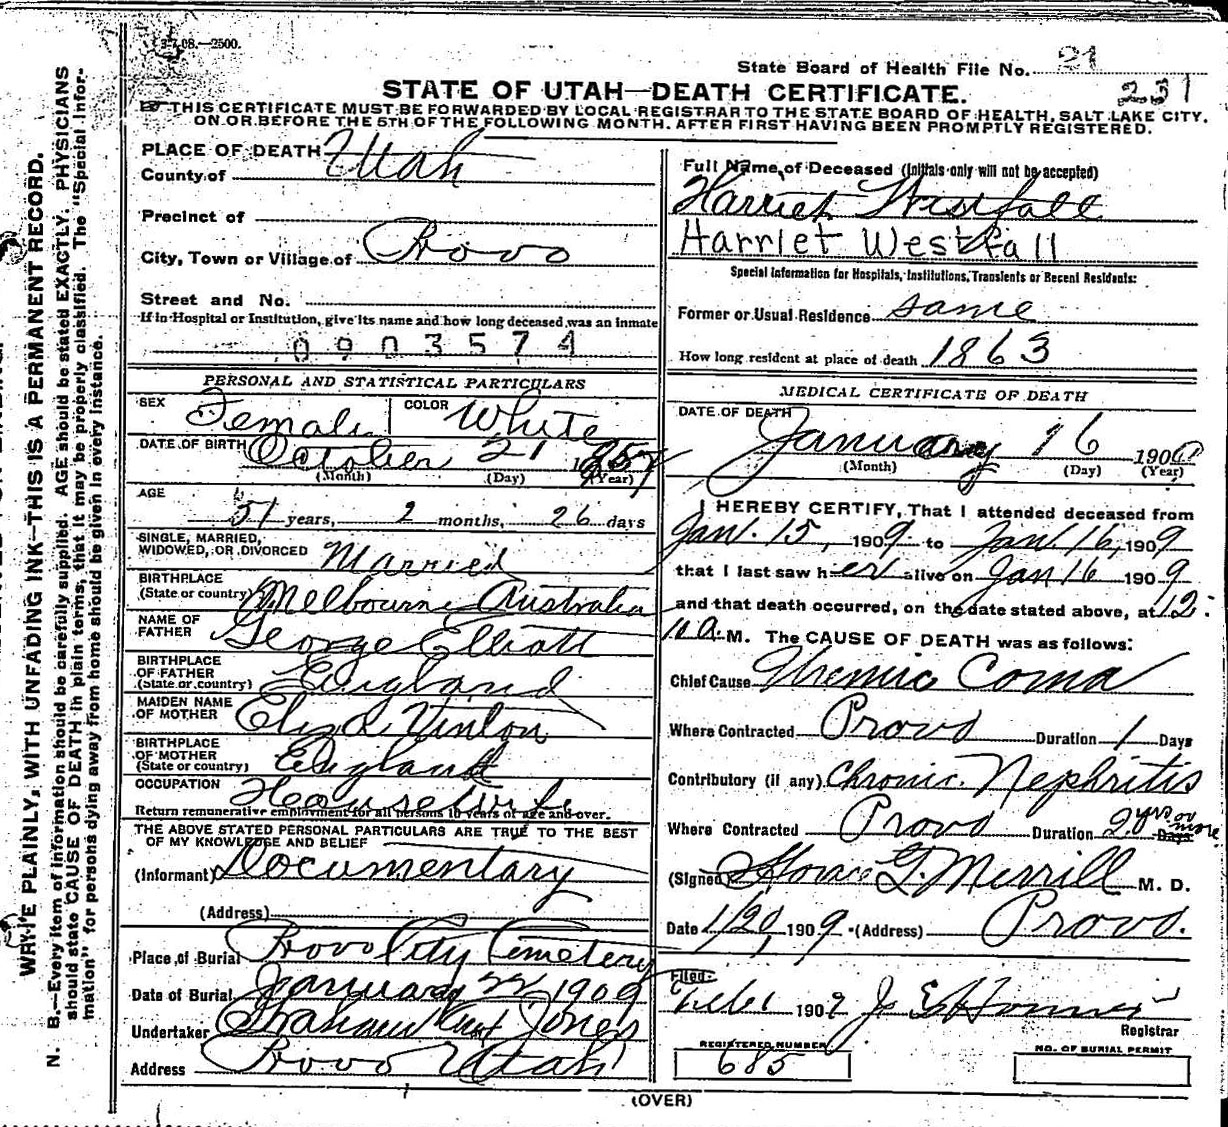 3-7-08.—2500.
State Board of Health File No. 21
231
STATE OF UTAH—DEATH CERTIFICATE.
THIS CERTIFICATE MUST BE FORWARDED BY LOCAL REGISTRAR TO THE STATE BOARD OF HEALTH, SALT LAKE CITY,
ON OR BEFORE THE 5TH OF THE FOLLOWING MONTH, AFTER FIRST HAVING BEEN PROMPTLY REGISTERED.
WRITE PLAINLY, WITH UNFADING INK—THIS IS A PERMANENT RECORD.
N. B.—Every item of information should be carefully supplied. AGE should be stated EXACTLY. PHYSICIANS
should state CAUSE OF DEATH in plain terms, that it may be properly classified. The "Special Infor-
mation" for persons dying away from home should be given in every instance.
PLACE OF DEATH
County of Utah
Precinct of
City, Town or Village of Provo
Street and No.
If in Hospital or Institution, give its name and how long deceased was an inmate
0903574
PERSONAL AND STATISTICAL PARTICULARS
SEX Female COLOR White
DATE OF BIRTH October 21 1857
(Month) (Day) (Year)
AGE
51 years, 2 months, 26 days
SINGLE, MARRIED,
WIDOWED, OR DIVORCED Married
BIRTHPLACE
(State or country) Melbourne Australia
NAME OF
FATHER George Elliott
BIRTHPLACE
OF FATHER
(State or country) England
MAIDEN NAME
OF MOTHER Eliza Vinton
BIRTHPLACE
OF MOTHER
(State or country) England
OCCUPATION Housewife
Return remunerative employment for all persons 10 years of age and over.
THE ABOVE STATED PERSONAL PARTICULARS ARE TRUE TO THE BEST
OF MY KNOWLEDGE AND BELIEF
(Informant) Documentary
(Address)
Place of Burial Provo City Cemetery
Date of Burial January 22 1909
Undertaker Graham and Jones
Address Provo Utah
Full Name of Deceased (Initials only will not be accepted)
Harriet Westfall
Harriet Westfall
Special Information for Hospitals, Institutions, Transients or Recent Residents:
Former or Usual Residence same
How long resident at place of death 1863
MEDICAL CERTIFICATE OF DEATH
DATE OF DEATH
January 16 1909
(Month) (Day) (Year)
I HEREBY CERTIFY, That I attended deceased from
Jan. 15, 1909 to Jan. 16, 1909
that I last saw her alive on Jan 16 1909
and that death occurred, on the date stated above, at 12:
10 a. M. The CAUSE OF DEATH was as follows:
Chief Cause Uremic Coma
Where Contracted Provo Duration 1 Days
Contributory (if any) Chronic Nephritis
Where Contracted Provo Duration 2 yrs or more Days
(Signed) Horace G. Merrill M. D.
Date 1/20, 1909 (Address) Provo.
Filed
Feb 1 1909 J. E.
Registrar
REGISTERED NUMBER
685
NO. OF BURIAL PERMIT
(OVER)